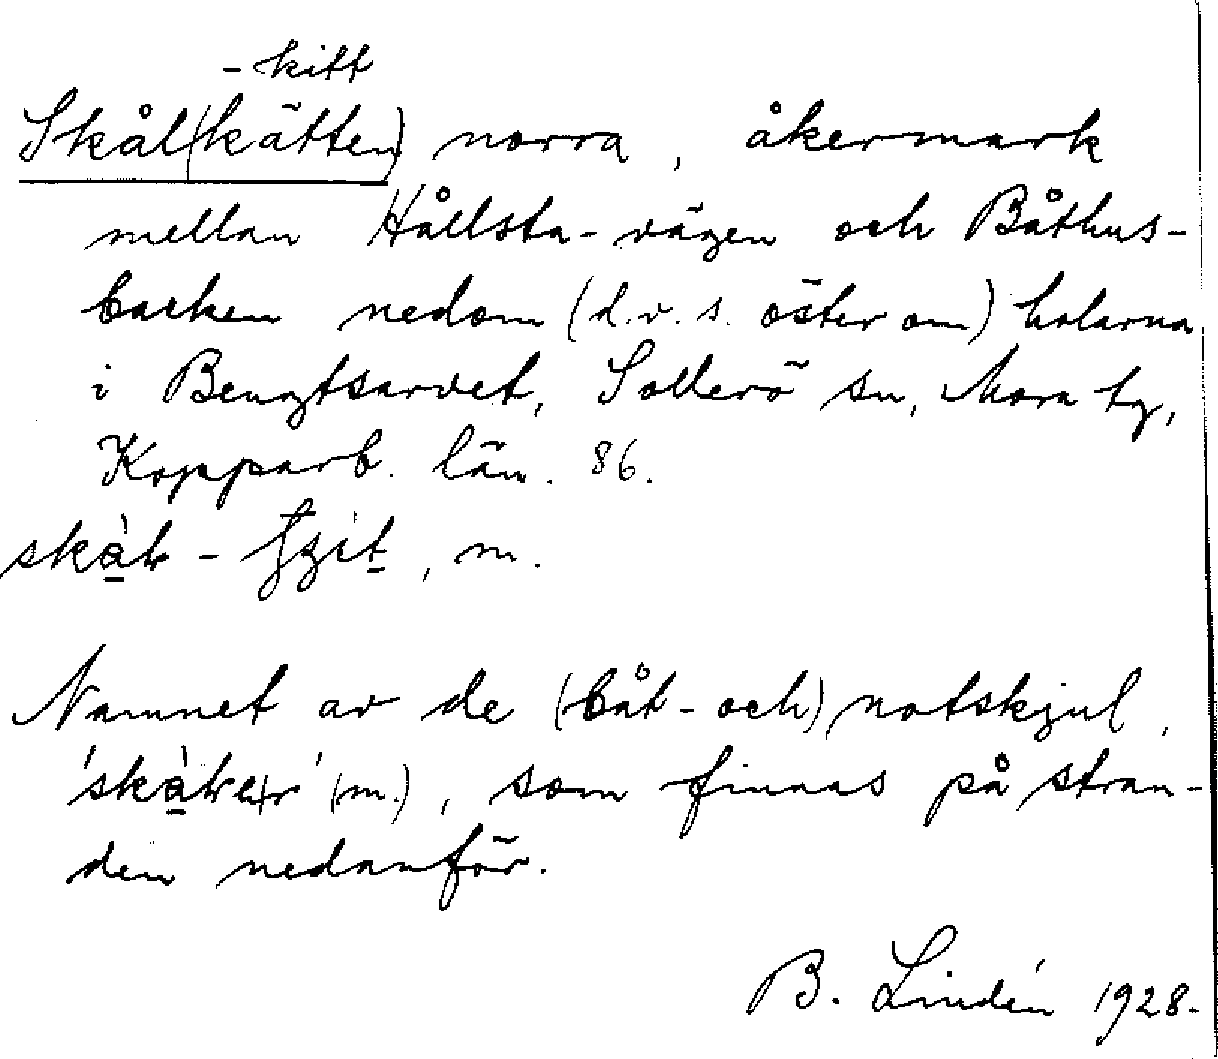 -kitt
Skål(kätten) norra, åkermark
mellan Hållsta-vägen och Båthus-
backen nedom (d.v.s. öster om) holarna
i Bengtsarvet, Sollerö sn, Mora tg,
Kopparb. län. 86.
, m.
Namnet av de (båt- och) notskjul,
(m.), som finnas på stran-
den nedanför.
B. Lindén 1928.